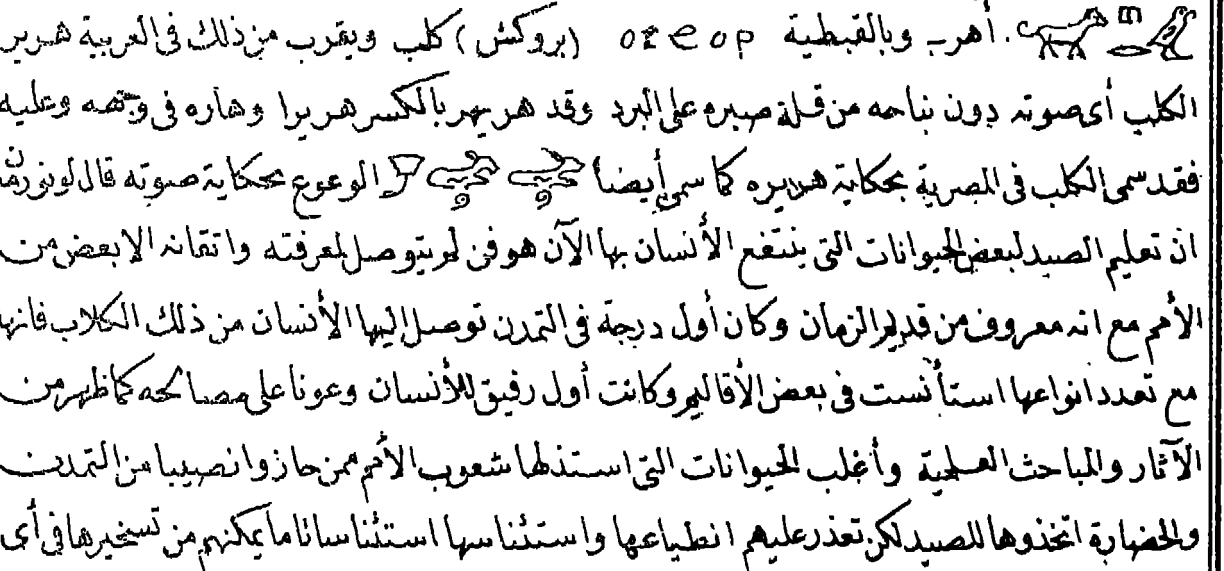 أهرب وبالقبطية ⲟⲩϩⲟⲣ (بروكش) كلب ويقرب من ذلك فى العربية هرير
الكلب أى صوته دون نباحه من قلة صبره على البرد وقد هر يهر بالكسر هريرا وهاره فى وجهه وعليه
فقد سمى الكلب فى المصرية بحكاية هريره كما سمى أيضا الوعوع بحكاية صوته قال لونورمن
ان تعليم الصيد لبعض الحيوانات التى ينتفع الأنسان بها الآن هو فن لم يتوصل لمعرفته واتقانه الا بعض من
الأمم مع انه معروف من قديم الزمان وكان أول درجة فى التمدن توصل اليها الأنسان من ذلك الكلاب فانها
مع تعدد انواعها استأنست فى بعض الأقاليم وكانت أول رفيق للأنسان وعونا على مصالحه كما ظهر من
الآثار والمباحث العلمية وأغلب الحيوانات التى استذلها شعوب الأمم ممن حازوا نصيبا من التمدن
والحضارة اتخذوها للصيد لكن تعذر عليهم انطياعها واستئناسها استئناسا تاما يمكنهم من تسخيرها فى أى